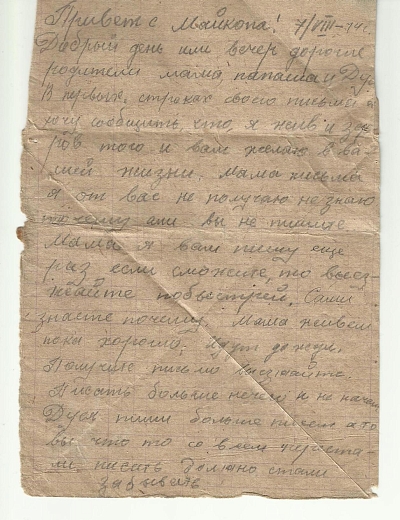 Привет с Майкопа! 7/VIII-74г.
Добрый день или вечер дорогие
родители мама, папаша и Дуся
В первых строках своего письма я
хочу сообщить, что я жив и здо
ров того и вам желаю в ва-
шей жизни. Мама письма
я от вас не получаю не знаю
почему али вы не пишите
Мама я вам пишу еще
раз если сможите, то выез-
жайте побыстрей. Сами
знаете почему. Мама живем
пока хорошо. Идут дожди.
Получите письмо
Писать больше нечего и не
Дуся пиши больше писем а то
вы что то со всем
ми писать больно стали
забывать